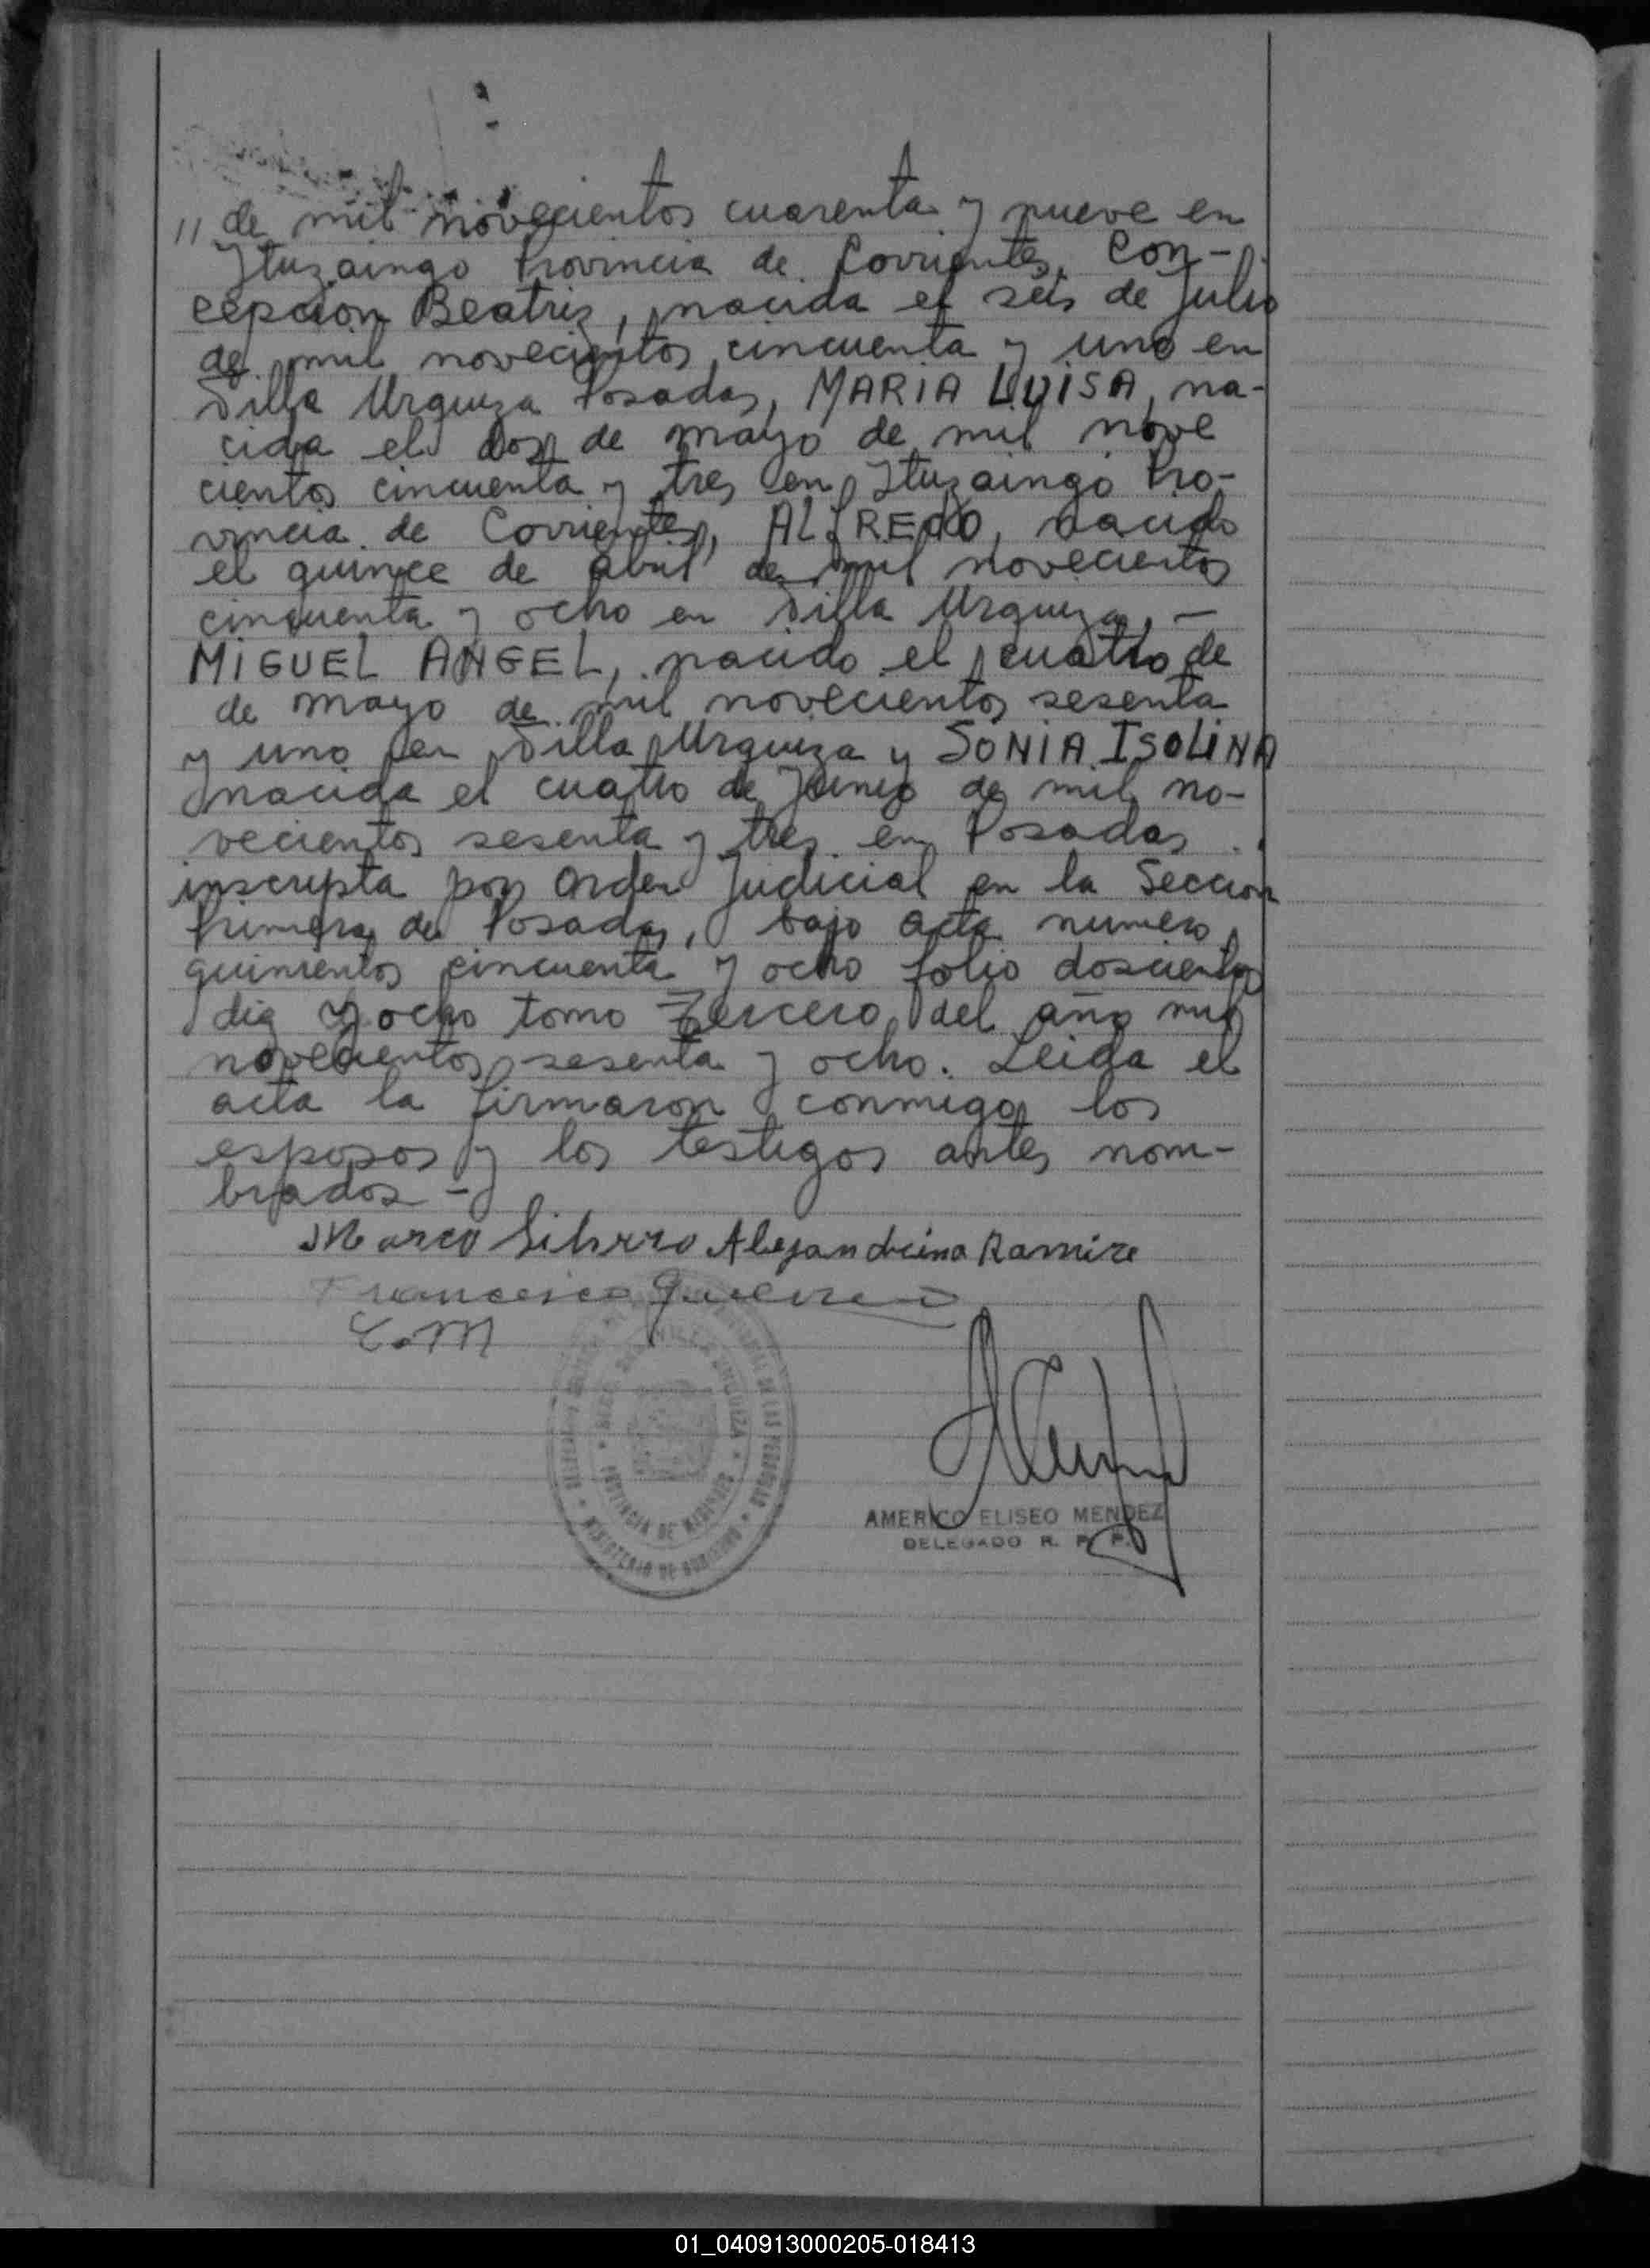 // de mil novecientos cuarenta y nueve en
Ituzaingo Provincia de Corrientes, Con-
cepcion Beatriz, nacida el seis de Julio
de mil novecientos cincuenta y uno en
Villa Urquiza Posadas, MARIA LUISA, na-
cida el dos de mayo de mil nove
cientos cincuenta y tres en Ituzaingo Pro-
vincia de Corrientes, ALFREDO, nacido
el quince de abril de mil novecientos
cincuenta y ocho en Villa Urquiza, -
MIGUEL ANGEL, nacido el cuatro de
de mayo de mil novecientos sesenta
y uno en Villa Urquiza y SONIA ISOLINA
nacida el cuatro de Junio de mil no-
vecientos sesenta y tres en Posadas
inscripta por Orden Judicial en la Seccion
Primera de Posadas, bajo acta numero
quinientos cincuenta y ocho folio doscientos
diez y ocho tomo Tercero del año mil
novecientos sesenta y ocho. Leida el
acta la firmaron conmigo los
esposos y los testigos antes nom-
brados -
Marco Alejandrina Ramire
Francisco
C.M
VILLA URQUIZA
PROVINCIA DE MISIONES
DE LAS PERSONAS
MINISTERIO DE GOBIERNO
AMERICO ELISEO MENDEZ
DELEGADO R. P. P.
01_040913000205-018413